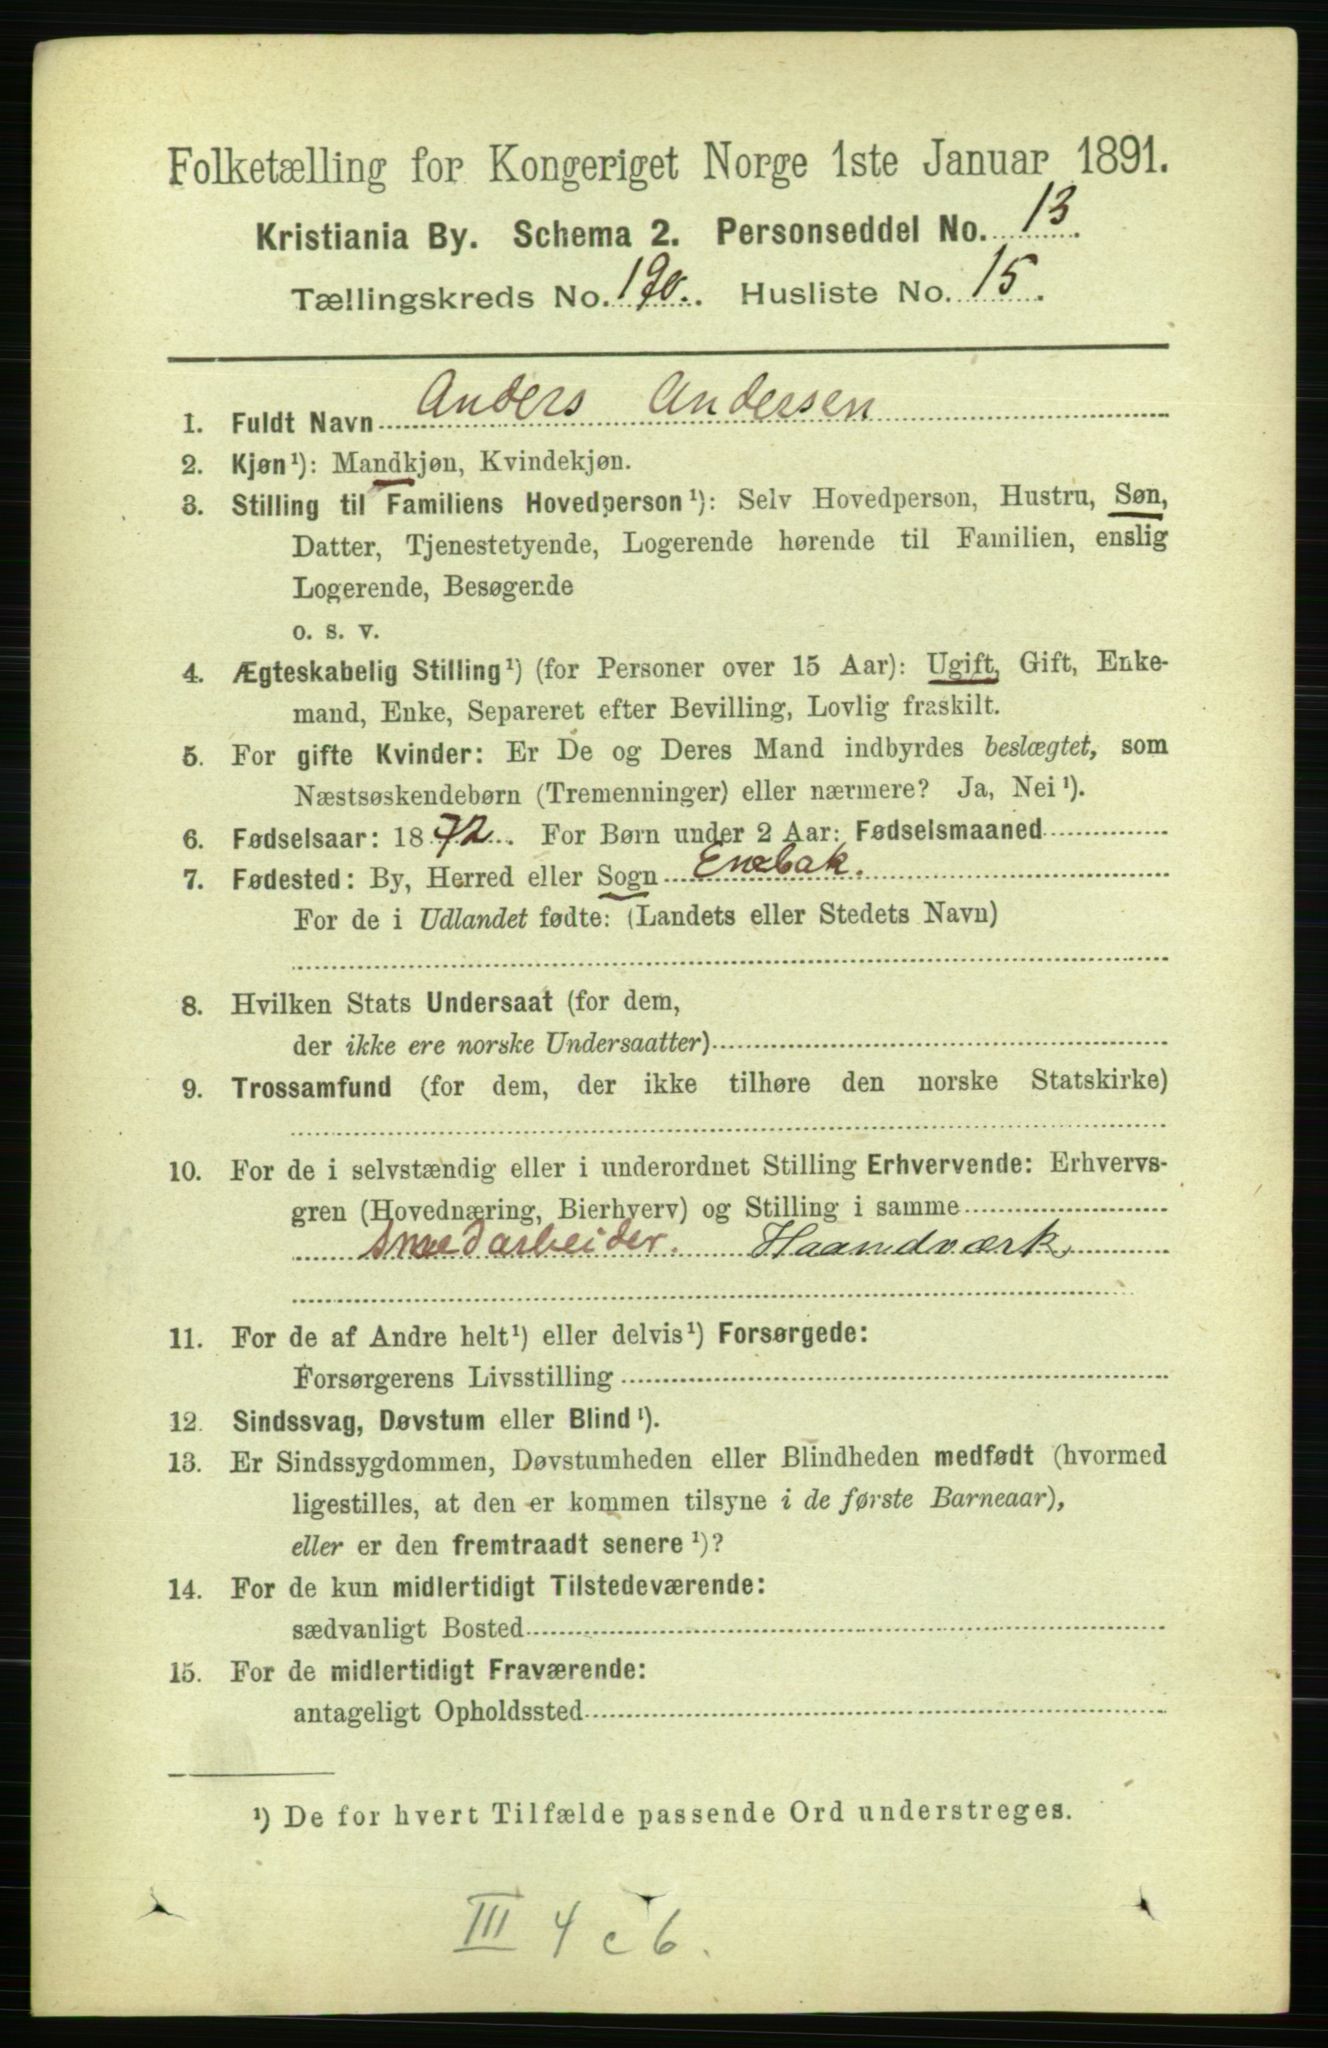 Folketælling for Kongeriget Norge 1ste Januar 1891.
Kristiania By. Schema 2. Personseddel No. 13.
Tællingskreds No. 190. Husliste No. 15.
1. Fuldt Navn Anders Andersen
2. Kjøn¹): Mandkjøn, Kvindekjøn.
3. Stilling til Familiens Hovedperson¹): Selv Hovedperson, Hustru, Søn,
Datter, Tjenestetyende, Logerende hørende til Familien, enslig
Logerende, Besøgende
o. s. v.
4. Ægteskabelig Stilling¹) (for Personer over 15 Aar): Ugift, Gift, Enke-
mand, Enke, Separeret efter Bevilling, Lovlig fraskilt.
5. For gifte Kvinder: Er De og Deres Mand indbyrdes beslægtet, som
Næstsøskendebørn (Tremenninger) eller nærmere? Ja, Nei¹).
6. Fødselsaar: 1872. For Børn under 2 Aar: Fødselsmaaned
7. Fødested: By, Herred eller Sogn Enebak.
For de i Udlandet fødte: (Landets eller Stedets Navn)
8. Hvilken Stats Undersaat (for dem,
der ikke ere norske Undersaatter)
9. Trossamfund (for dem, der ikke tilhøre den norske Statskirke)
10. For de i selvstændig eller i underordnet Stilling Erhvervende: Erhvervs-
gren (Hovednæring, Bierhverv) og Stilling i samme
Smedarbeider. Haandværk.
11. For de af Andre helt¹) eller delvis¹) Forsørgede:
Forsørgerens Livsstilling
12. Sindssvag, Døvstum eller Blind¹).
13. Er Sindssygdommen, Døvstumheden eller Blindheden medfødt (hvormed
ligestilles, at den er kommen tilsyne i de første Barneaar),
eller er den fremtraadt senere¹)?
14. For de kun midlertidigt Tilstedeværende:
sædvanligt Bosted
15. For de midlertidigt Fraværende:
antageligt Opholdssted
¹) De for hvert Tilfælde passende Ord understreges.
III 4 c 6.